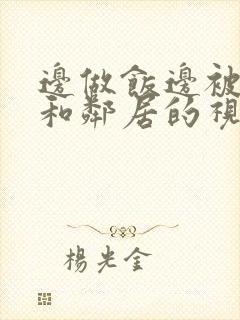 邊做飯邊被
和鄰居的視
楊光金